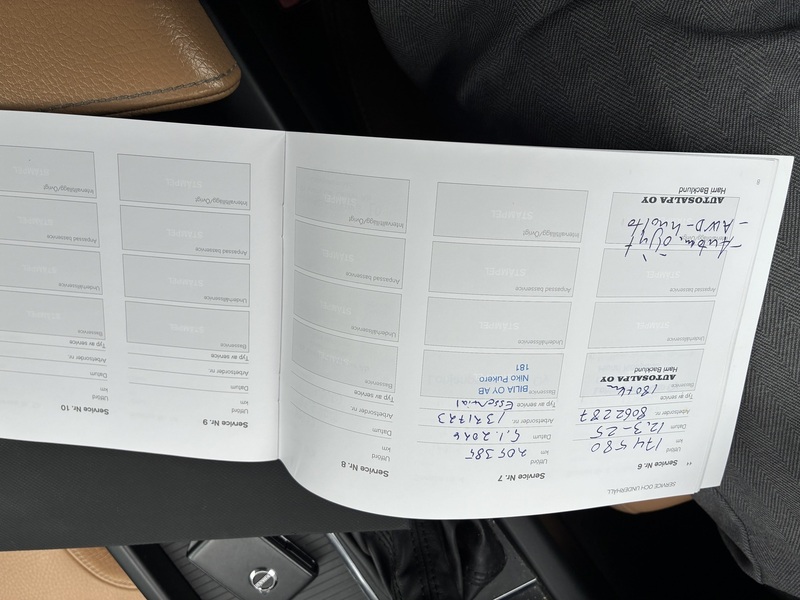 SERVICE OCH UNDERHÅLL
Service Nr. 6
Utförd
km 174 580
Datum 12.3-25
Arbetsorder nr. 8062287
Typ av service 180 tkm
Basservice
AUTOSALPA OY
Harri Backlund
Underhållsservice
STÄMPEL
Anpassad basservice
STÄMPEL
Intervalltillägg/Övrigt
- Autom. öljyt
- AWD-huolto
AUTOSALPA OY
Harri Backlund
Service Nr. 7
Utförd
km 205 385
Datum 5.1.2026
Arbetsorder nr. 1321723
Typ av service Essential
Basservice
BILIA OY AB
Niko Pukero
181
Underhållsservice
STÄMPEL
Anpassad basservice
STÄMPEL
Intervalltillägg/Övrigt
STÄMPEL
Service Nr. 8
Utförd
km
Datum
Arbetsorder nr.
Typ av service
Basservice
STÄMPEL
Underhållsservice
STÄMPEL
Anpassad basservice
STÄMPEL
Intervalltillägg/Övrigt
STÄMPEL
Service Nr. 9
Utförd
km
Datum
Arbetsorder nr.
Typ av service
Basservice
STÄMPEL
Underhållsservice
STÄMPEL
Anpassad basservice
STÄMPEL
Intervalltillägg/Övrigt
STÄMPEL
Service Nr. 10
Utförd
km
Datum
Arbetsorder nr.
Typ av service
Basservice
STÄMPEL
Underhållsservice
STÄMPEL
Anpassad basservice
STÄMPEL
Intervalltillägg/Övrigt
STÄMPEL